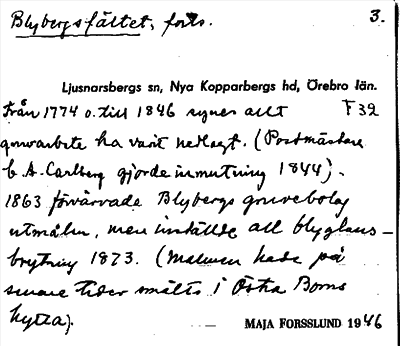 Blybergsfältet, forts. 3.
Ljusnarsbergs sn, Nya Kopparbergs hd, Örebro län.
Från 1774 o. till 1846 synes allt F 32
gruvarbete ha varit nedlagt. (Postmästare
C. A. Carlberg gjorde inmutning 1844).
1863 förvärvade Blybergs gruvebolag
utmålen, men inställde all blyglans-
brytning 1873. (Malmen hade på
senare tider smälts i Östra Borns
hytta).
MAJA FORSSLUND 1946